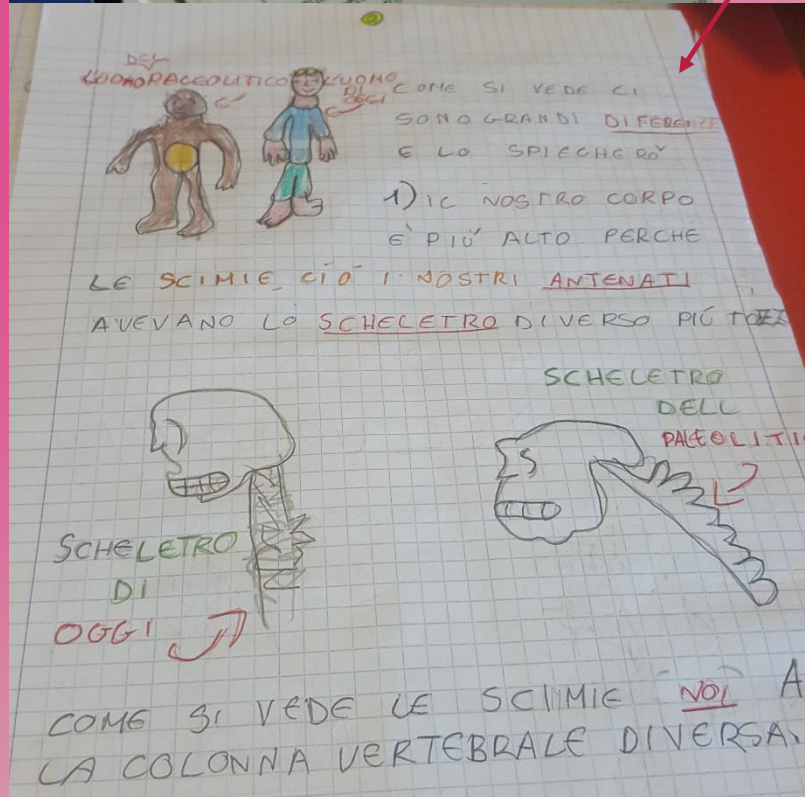 DEL
L'UOMO PALEOLITICO
L'UOMO
DI
OGGI
COME SI VEDE CI
SONO GRANDI DIFERENZE
E LO SPIECHERÒ
1) IL NOSTRO CORPO
È PIÙ ALTO PERCHÈ
LE SCIMIE CIÒ I NOSTRI ANTENATI
AVEVANO LO SCHELETRO DIVERSO PIÙ
SCHELETRO
DELL
PALEOLITI
SCHELETRO
DI
OGGI
COME SI VEDE LE SCIMIE NOI A
LA COLONNA VERTEBRALE DIVERSA.